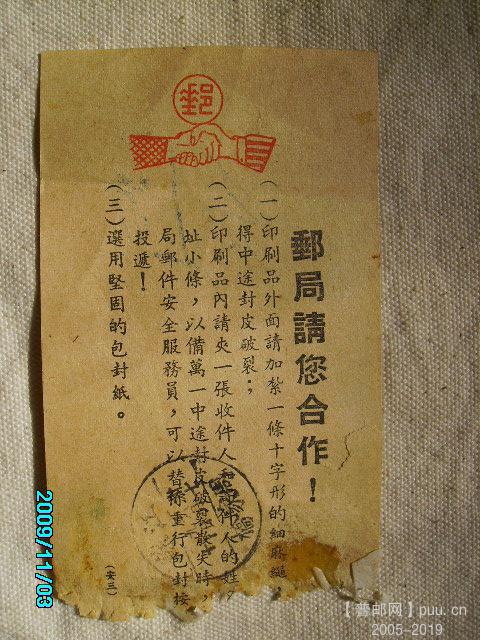 郵
郵局請您合作！
(一)印刷品外面請加紮一條十字形的細麻繩，
得中途封皮破裂；
(二)印刷品內請夾一張收件人和寄件人的姓名
址小條，以備萬一中途封皮破裂散失時，
局郵件安全服務員，可以替你重行包封按
投遞！
(三)選用堅固的包封紙。
(安三)
2009/11/03
【普邮网】puu.cn
2005-2019